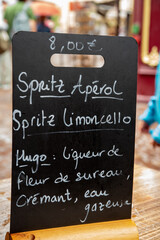 8,00€
Spritz Apérol
Spritz Limoncello
Hugo : liqueur de
fleur de sureau,
Crémant, eau
gazeuse